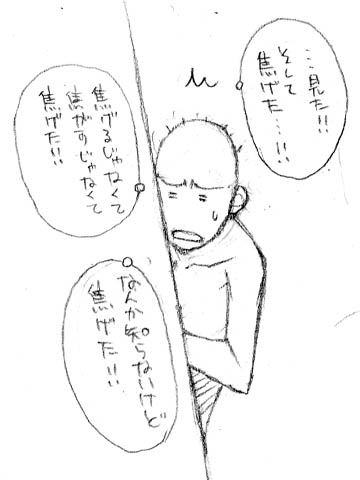 …見た!!
そして
焦げた…!!
焦げるじゃなくて
焦がすじゃなくて
焦げた!!
なんか知らないけど
焦げた!!